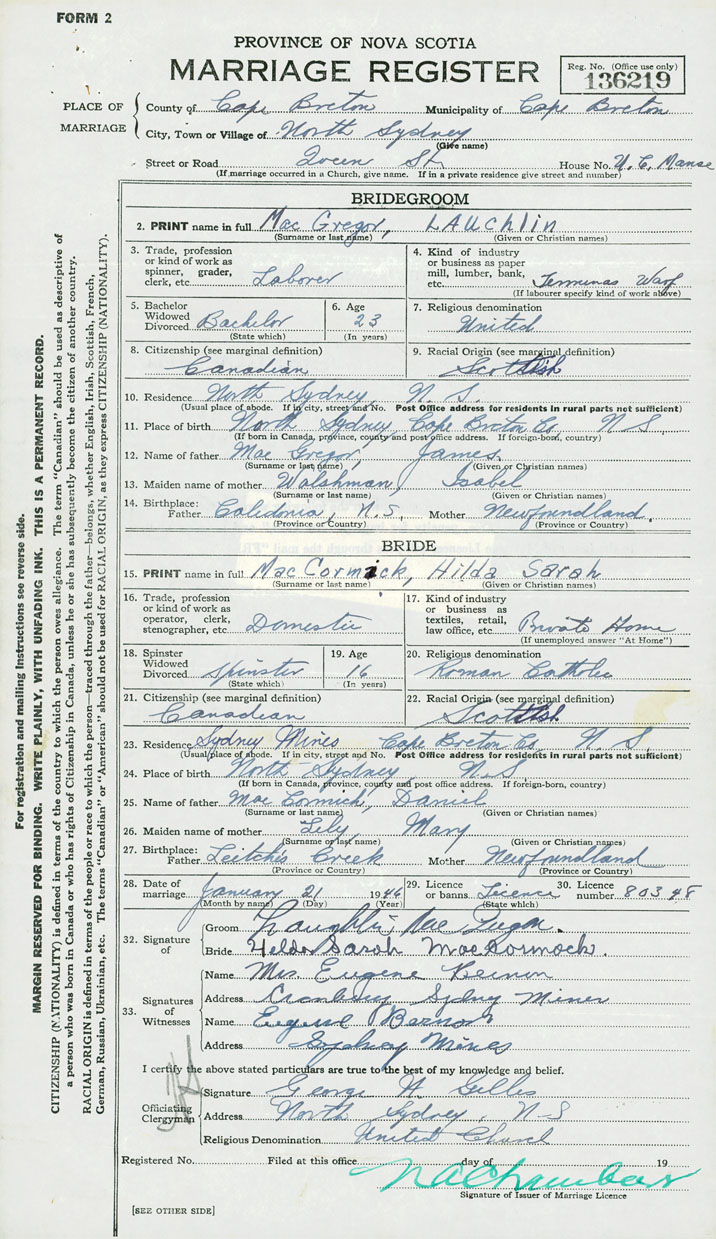 FORM 2
PROVINCE OF NOVA SCOTIA
MARRIAGE REGISTER
Reg. No. (Office use only)
136219
PLACE OF MARRIAGE
County of Cape Breton Municipality of Cape Breton
City, Town or Village of North Sydney
(Give name)
Street or Road Queen St. House No. U. C. Manse
(If marriage occurred in a Church, give name. If in a private residence give street and number)
BRIDEGROOM
2. PRINT name in full Mac Gregor, LAUchlin
(Surname or last name) (Given or Christian names)
3. Trade, profession or kind of work as spinner, grader, clerk, etc. Laborer
4. Kind of industry or business as paper mill, lumber, bank, etc.
(If labourer specify kind of work above)
5. Bachelor Widowed Divorced Bachelor
(State which)
6. Age 23
(In years)
7. Religious denomination United
8. Citizenship (see marginal definition) Canadian
9. Racial Origin (see marginal definition) Scottish
10. Residence North Sydney, N. S.
(Usual place of abode. If in city, street and No. Post Office address for residents in rural parts not sufficient)
11. Place of birth North Sydney, Cape Breton Co. N S
(If born in Canada, province, county and post office address. If foreign-born, country)
12. Name of father Mac Gregor, James
(Surname or last name) (Given or Christian names)
13. Maiden name of mother Walshman, Isabel
(Surname or last name) (Given or Christian names)
14. Birthplace: Father Caledonia, N.S, Mother Newfoundland.
(Province or Country) (Province or Country)
BRIDE
15. PRINT name in full Mac Cormick, Hilda Sarah
(Surname or last name) (Given or Christian names)
16. Trade, profession or kind of work as operator, clerk, stenographer, etc. Domestic
17. Kind of industry or business as textiles, retail, law office, etc. Private Home
(If unemployed answer "At Home")
18. Spinster Widowed Divorced Spinster
(State which)
19. Age 16
(In years)
20. Religious denomination Roman Catholic
21. Citizenship (see marginal definition) Canadian
22. Racial Origin (see marginal definition) Scottish
23. Residence Sydney Mines Cape Breton Co, N. S.
(Usual place of abode. If in city, street and No. Post Office address for residents in rural parts not sufficient)
24. Place of birth North Sydney, N. S
(If born in Canada, province, county and post office address. If foreign-born, country)
25. Name of father Mac Cormick, Daniel
(Surname or last name) (Given or Christian names)
26. Maiden name of mother Lily, Mary
(Surname or last name) (Given or Christian names)
27. Birthplace: Father Leitches Creek Mother Newfoundland
(Province or Country) (Province or Country)
28. Date of marriage January 21 1946
(Month by name) (Day) (Year)
29. Licence or banns Licence
(State which)
30. Licence number 80348
32. Signature of
Groom
Bride Hilda Sarah MacKormock.
33. Signatures of Witnesses
Name Mrs. Eugene
Address Cranberry Sydney Mines
Name
Address Sydney Mines
I certify the above stated particulars are true to the best of my knowledge and belief.
Officiating Clergyman
Signature George A. Gillis
Address North Sydney, N-S
Religious Denomination United Church
Registered No. Filed at this office day of 19
Signature of Issuer of Marriage Licence
[SEE OTHER SIDE]
For registration and mailing Instructions see reverse side.
MARGIN RESERVED FOR BINDING. WRITE PLAINLY, WITH UNFADING INK. THIS IS A PERMANENT RECORD.
CITIZENSHIP (NATIONALITY) is defined in terms of the country to which the person owes allegiance. The term "Canadian" should be used as descriptive of
a person who was born in Canada or who has rights of Citizenship in Canada, unless he or she has subsequently become the citizen of another country.
RACIAL ORIGIN is defined in terms of the people or race to which the person—traced through the father—belongs, whether English, Irish, Scottish, French,
German, Russian, Ukrainian, etc. The terms "Canadian" or "American" should not be used for RACIAL ORIGIN, as they express CITIZENSHIP (NATIONALITY).